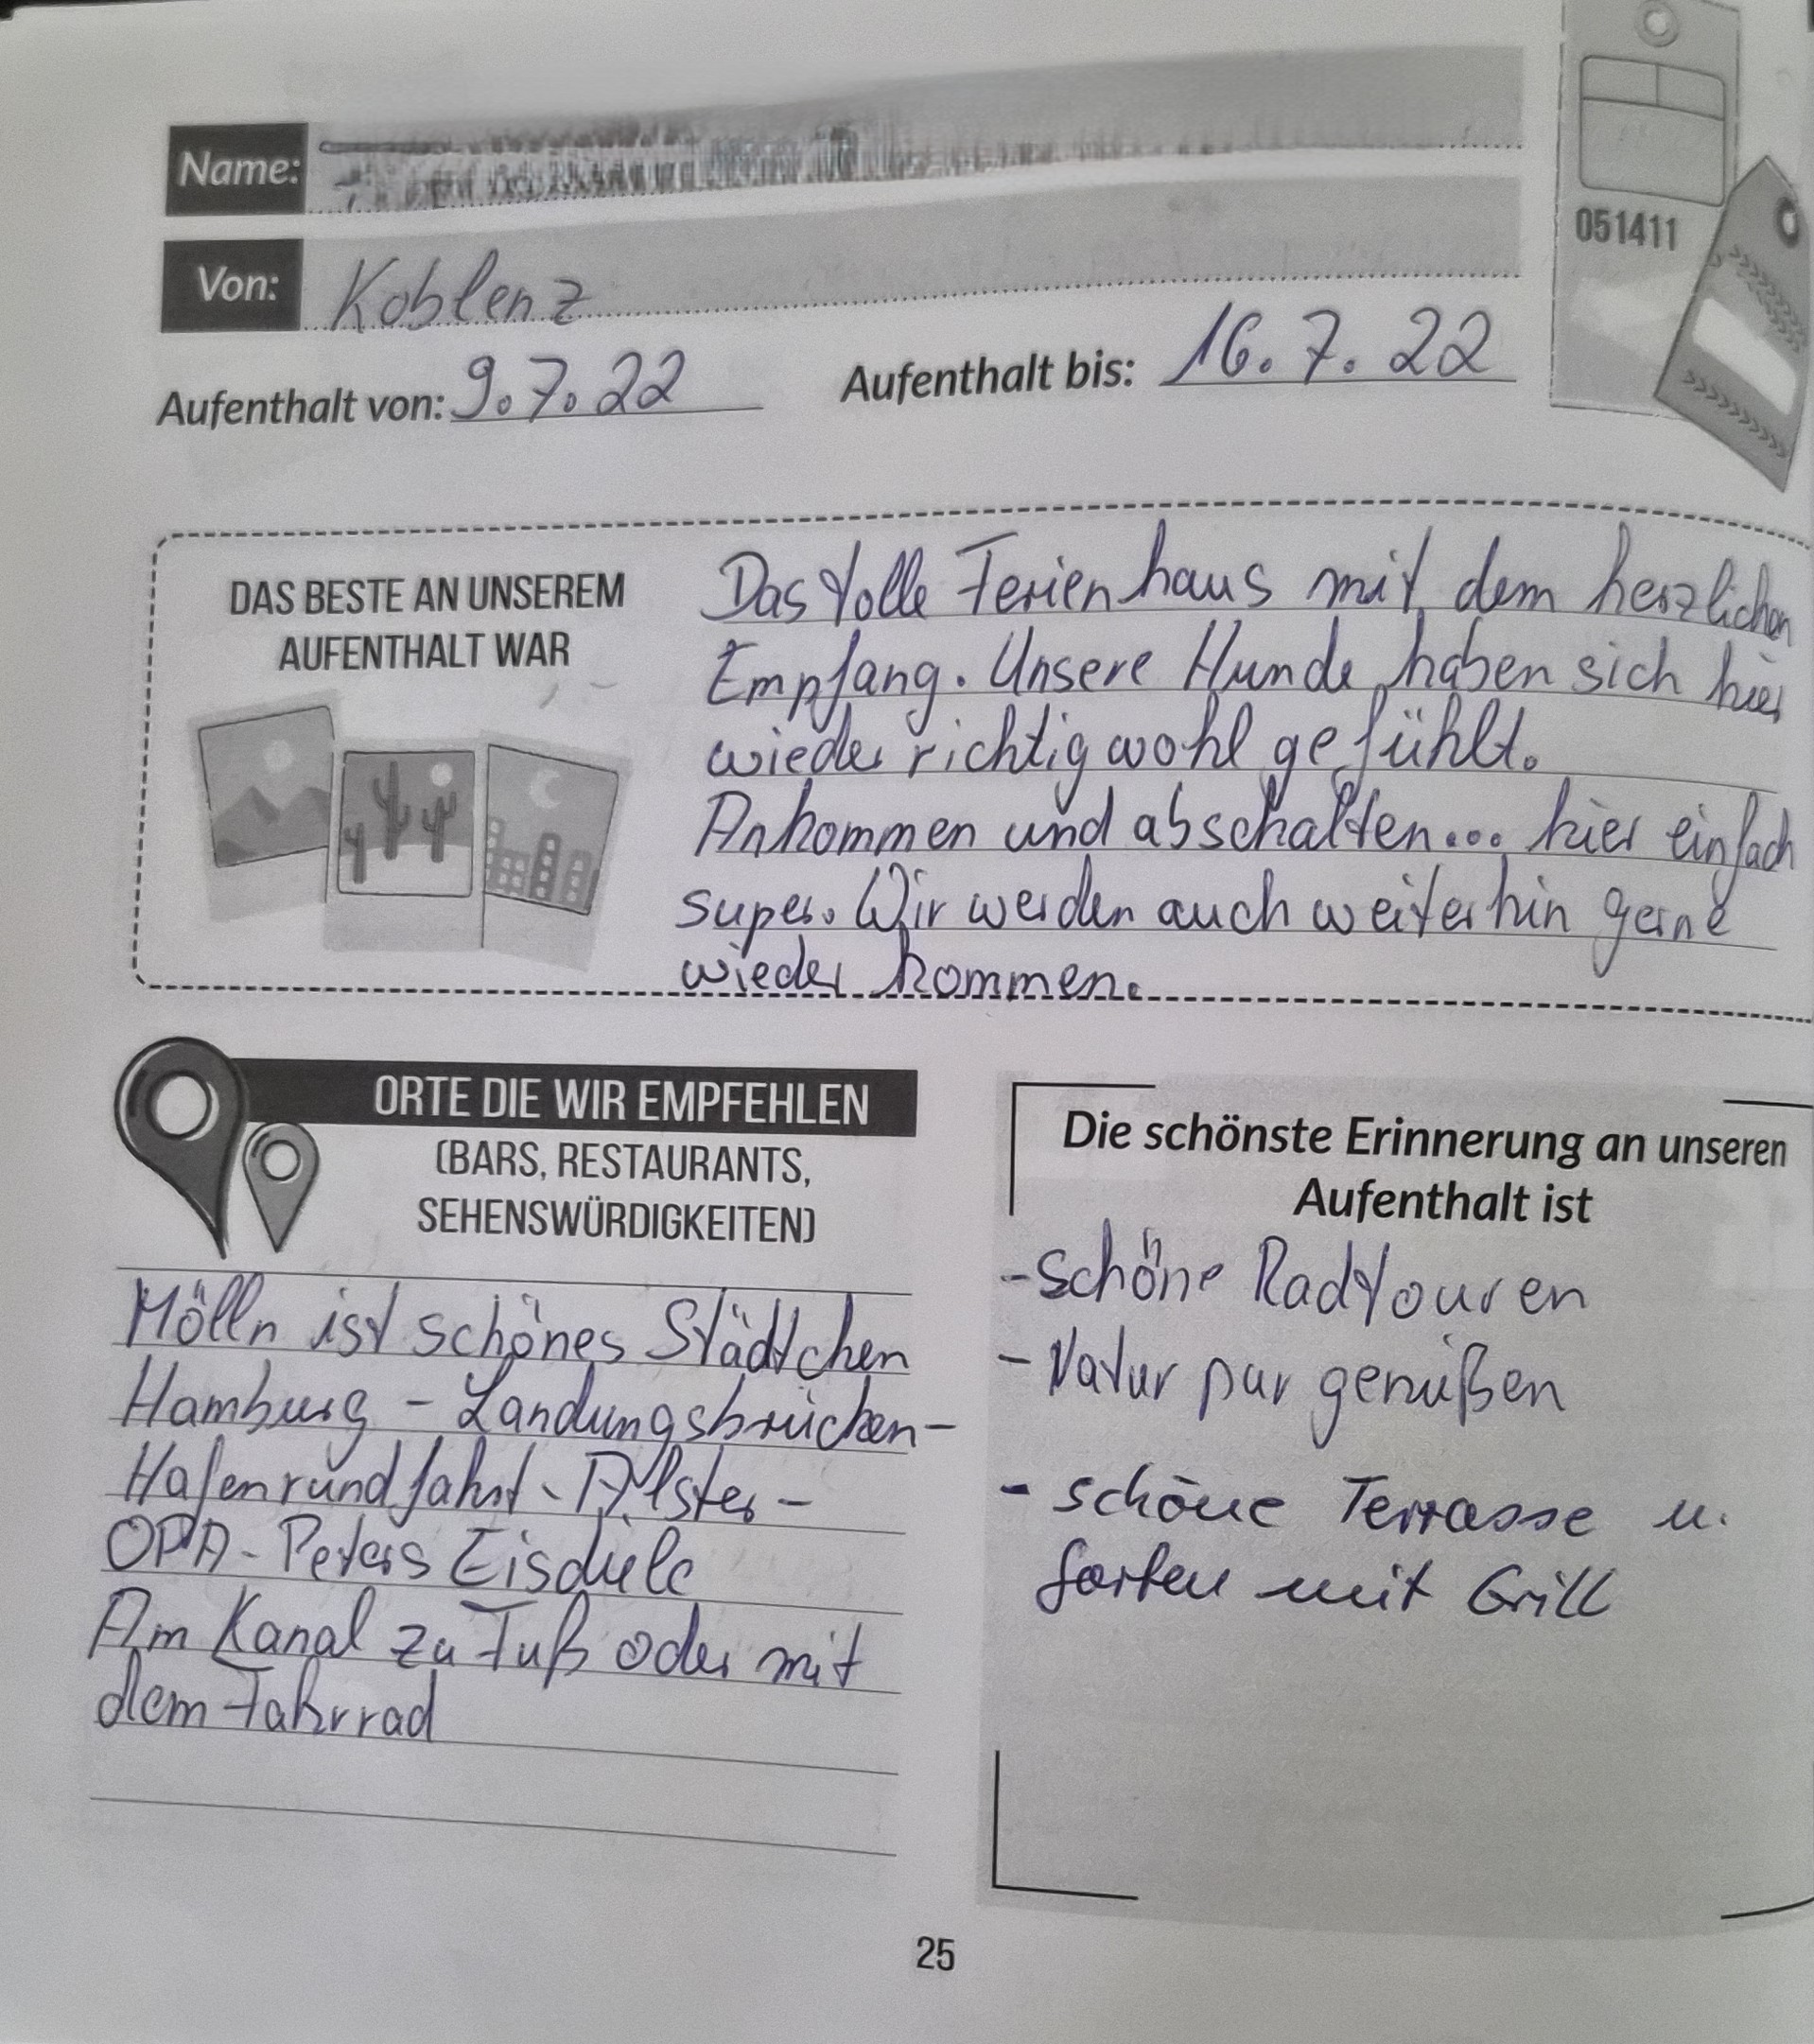 Name:
Von: Koblenz
Aufenthalt von: 9.7.22 Aufenthalt bis: 16.7.22
051411
DAS BESTE AN UNSEREM
AUFENTHALT WAR
Das tolle Ferienhaus mit dem herzlichen
Empfang. Unsere Hunde haben sich hier
wieder richtig wohl gefühlt.
Ankommen und abschalten... hier einfach
super. Wir werden auch weiterhin gerne
wieder kommen.
ORTE DIE WIR EMPFEHLEN
(BARS, RESTAURANTS,
SEHENSWÜRDIGKEITEN)
Mölln ist schönes Städtchen
Hamburg - Landungsbrücken-
Hafenrundfahrt - Alster -
OPA - Peters Eisdiele
Am Kanal zu Fuß oder mit
dem Fahrrad
Die schönste Erinnerung an unseren
Aufenthalt ist
- schöne Radtouren
- Natur pur genüßen
- schöne Terrasse u.
Garten mit Grill
25